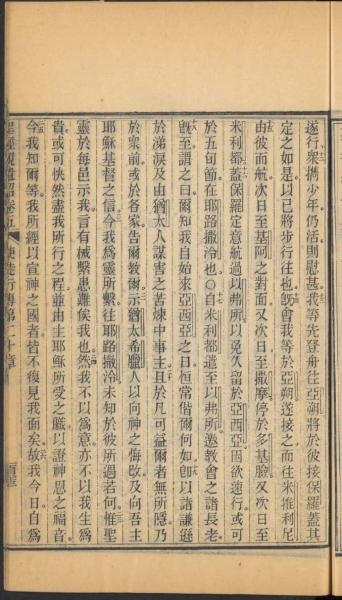 遂行衆攜少年仍活則慰甚我等先登舟往亞朔將於彼接保羅蓋其
定之如是以已將步行往也旣會我等於亞朔遂接之而往米推利尼
由彼而航次日至基阿之對面又次日至撒摩停於多基臉又次日至
米利都蓋保羅定意航過以弗所以免久留於亞西亞因欲速行或可
於五旬節在耶路撒冷也〇自米利都遣至以弗所邀敎會之諸長老
旣至謂之曰爾知我自始來亞西亞之日恒常偕爾何如卽以諸謙遜
於涕淚及由猶太人謀害之苦煉中事主且於凡可益爾者無所隱乃
於衆前或於各家告爾敎爾示猶太希臘人以向神之悔改及向吾主
耶穌基督之信今我爲靈所繫往耶路撒冷未知於彼所遇若何惟聖
靈於每邑示我言有械繫患難俟我也然我不以爲意亦不以我生爲
貴或可快然盡我所行之程並由主耶穌所受之職以證神恩之福音
今我知爾等我所經以宣神之國者皆不復見我面矣故我今日自爲
卷五 使徒行傳第二十章